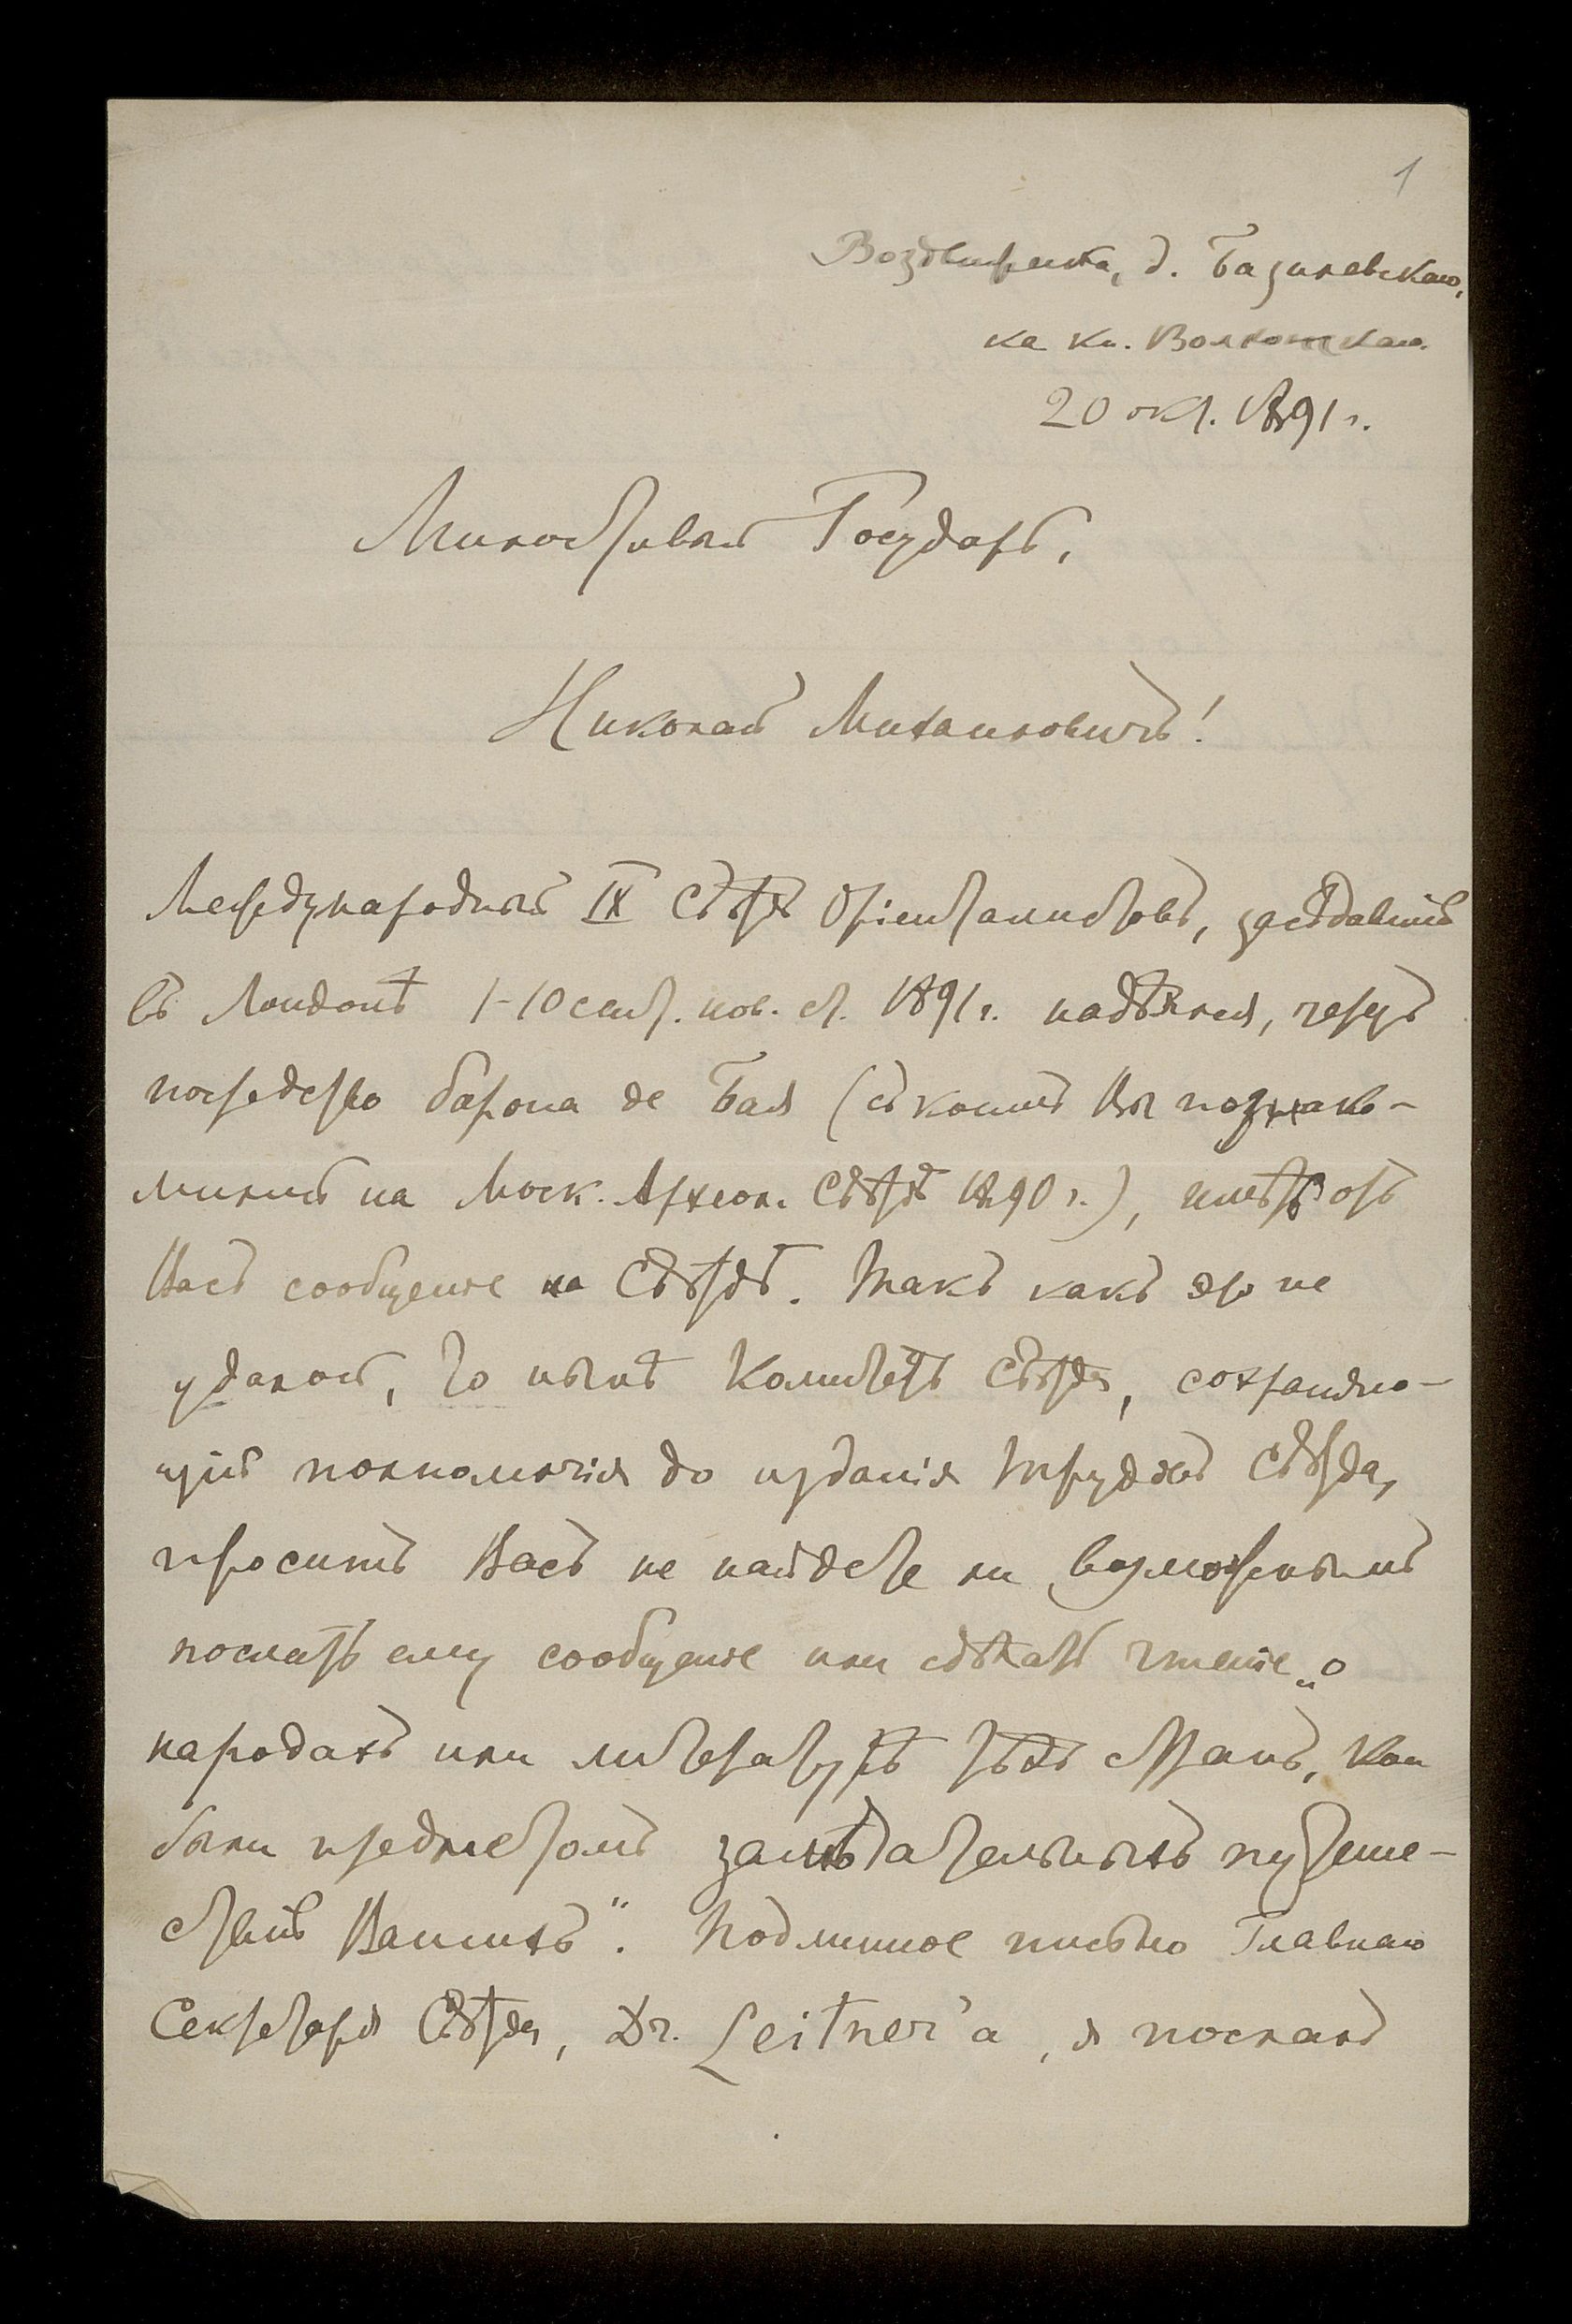 1
Воздвиженка, д. Базилевскаго,
кв. кн. Волконскаго.
20 окт. 1891 г.
Милостивый Государь,
Николай Михаиловичъ!
Международный IX Съѣздъ Оріенталистовъ, засѣдавшій
въ Лондонѣ 1-10 сент. нов. ст. 1891 г. надѣялся, чрезъ
посредство барона де Бая (съ коимъ Вы познако-
мились на Моск. Археол. Съѣздѣ 1890 г.), имѣть отъ
Васъ сообщеніе на Съѣздѣ. Такъ какъ это не
удалось, то нынѣ Комитетъ Съѣзда, сохраняю-
щій полномочія до изданія Трудовъ Съѣзда,
проситъ Васъ не найдете ли возможнымъ
послать ему сообщеніе или сдѣлать чтеніе „о
народахъ или литературѣ тѣхъ странъ, кои
были предметомъ замѣчательныхъ путеше-
ствій Вашихъ“. Подлинное письмо Главнаго
Секретаря Съѣзда, Dr. Leitner'а, я послалъ